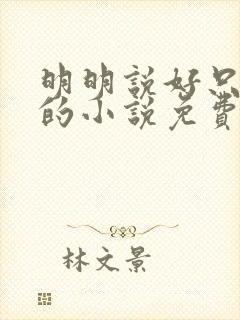 明明說好只
的小說免費
林文景